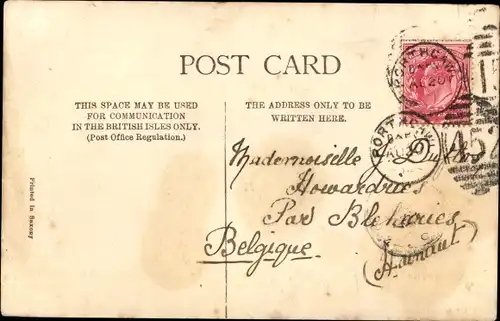 POST CARD
THIS SPACE MAY BE USED
FOR COMMUNICATION
IN THE BRITISH ISLES ONLY.
(Post Office Regulation.)
THE ADDRESS ONLY TO BE
WRITTEN HERE.
Printed in Saxony
PORTHCAWL
AU 20
PORTHCAWL
Mademoiselle J.
Howardries
Par Bleharies
Belgique
(Hainaut)